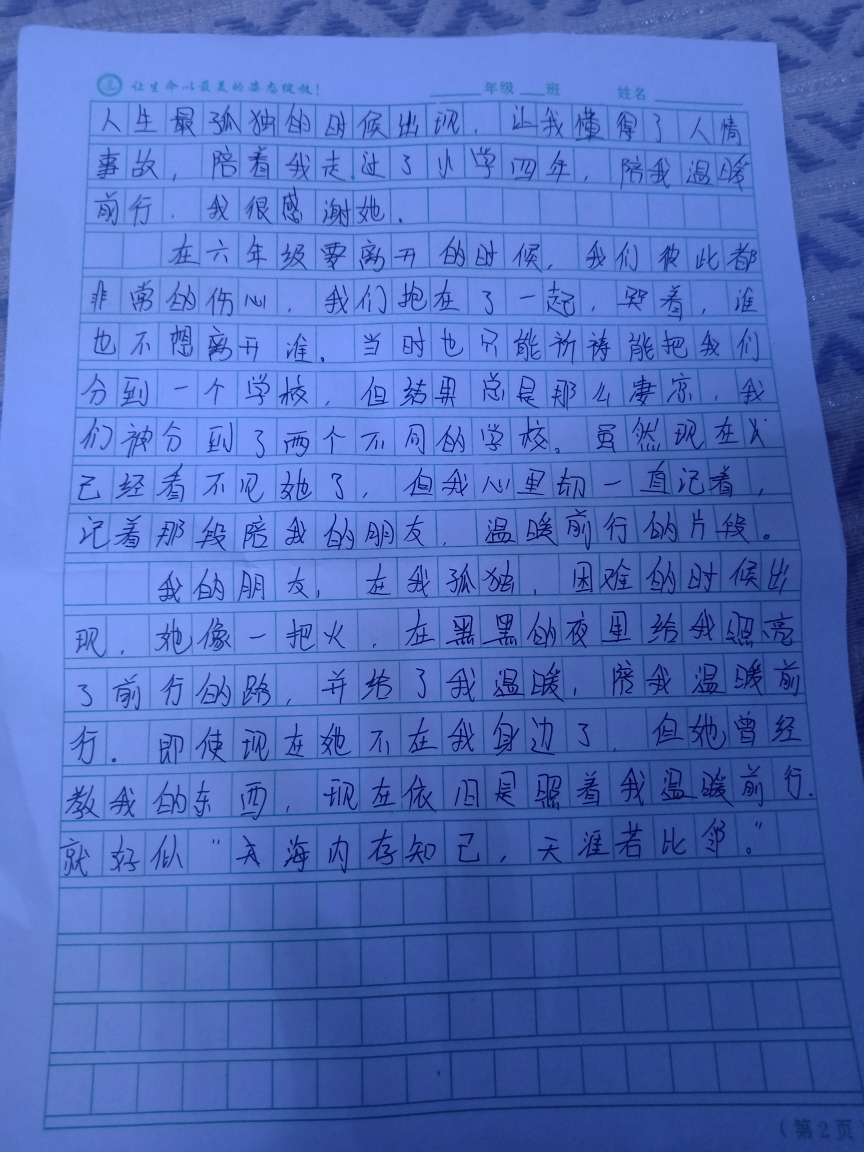 让生命以最美的姿态绽放！ 年级 班 姓名
人生最孤独的时候出现，让我懂得了人情
事故，陪着我走过了小学四年，陪我温暖
前行，我很感谢她。
在六年级要离开的时候，我们彼此都
非常的伤心，我们抱在了一起，哭着，谁
也不想离开谁。当时也只能祈祷能把我们
分到一个学校，但结果总是那么凄凉，我
们被分到了两个不同的学校。虽然现在
已经看不见她了，但我心里却一直记着，
记着那段陪我的朋友，温暖前行的片段。
我的朋友，在我孤独，困难的时候出
现，她像一把火，在黑黑的夜里给我照亮
了前行的路，并给了我温暖，陪我温暖前
行。即使现在她不在我身边了，但她曾经
教我的东西，现在依旧是照着我温暖前行.
就好似“海内存知己，天涯若比邻。”
（第2页